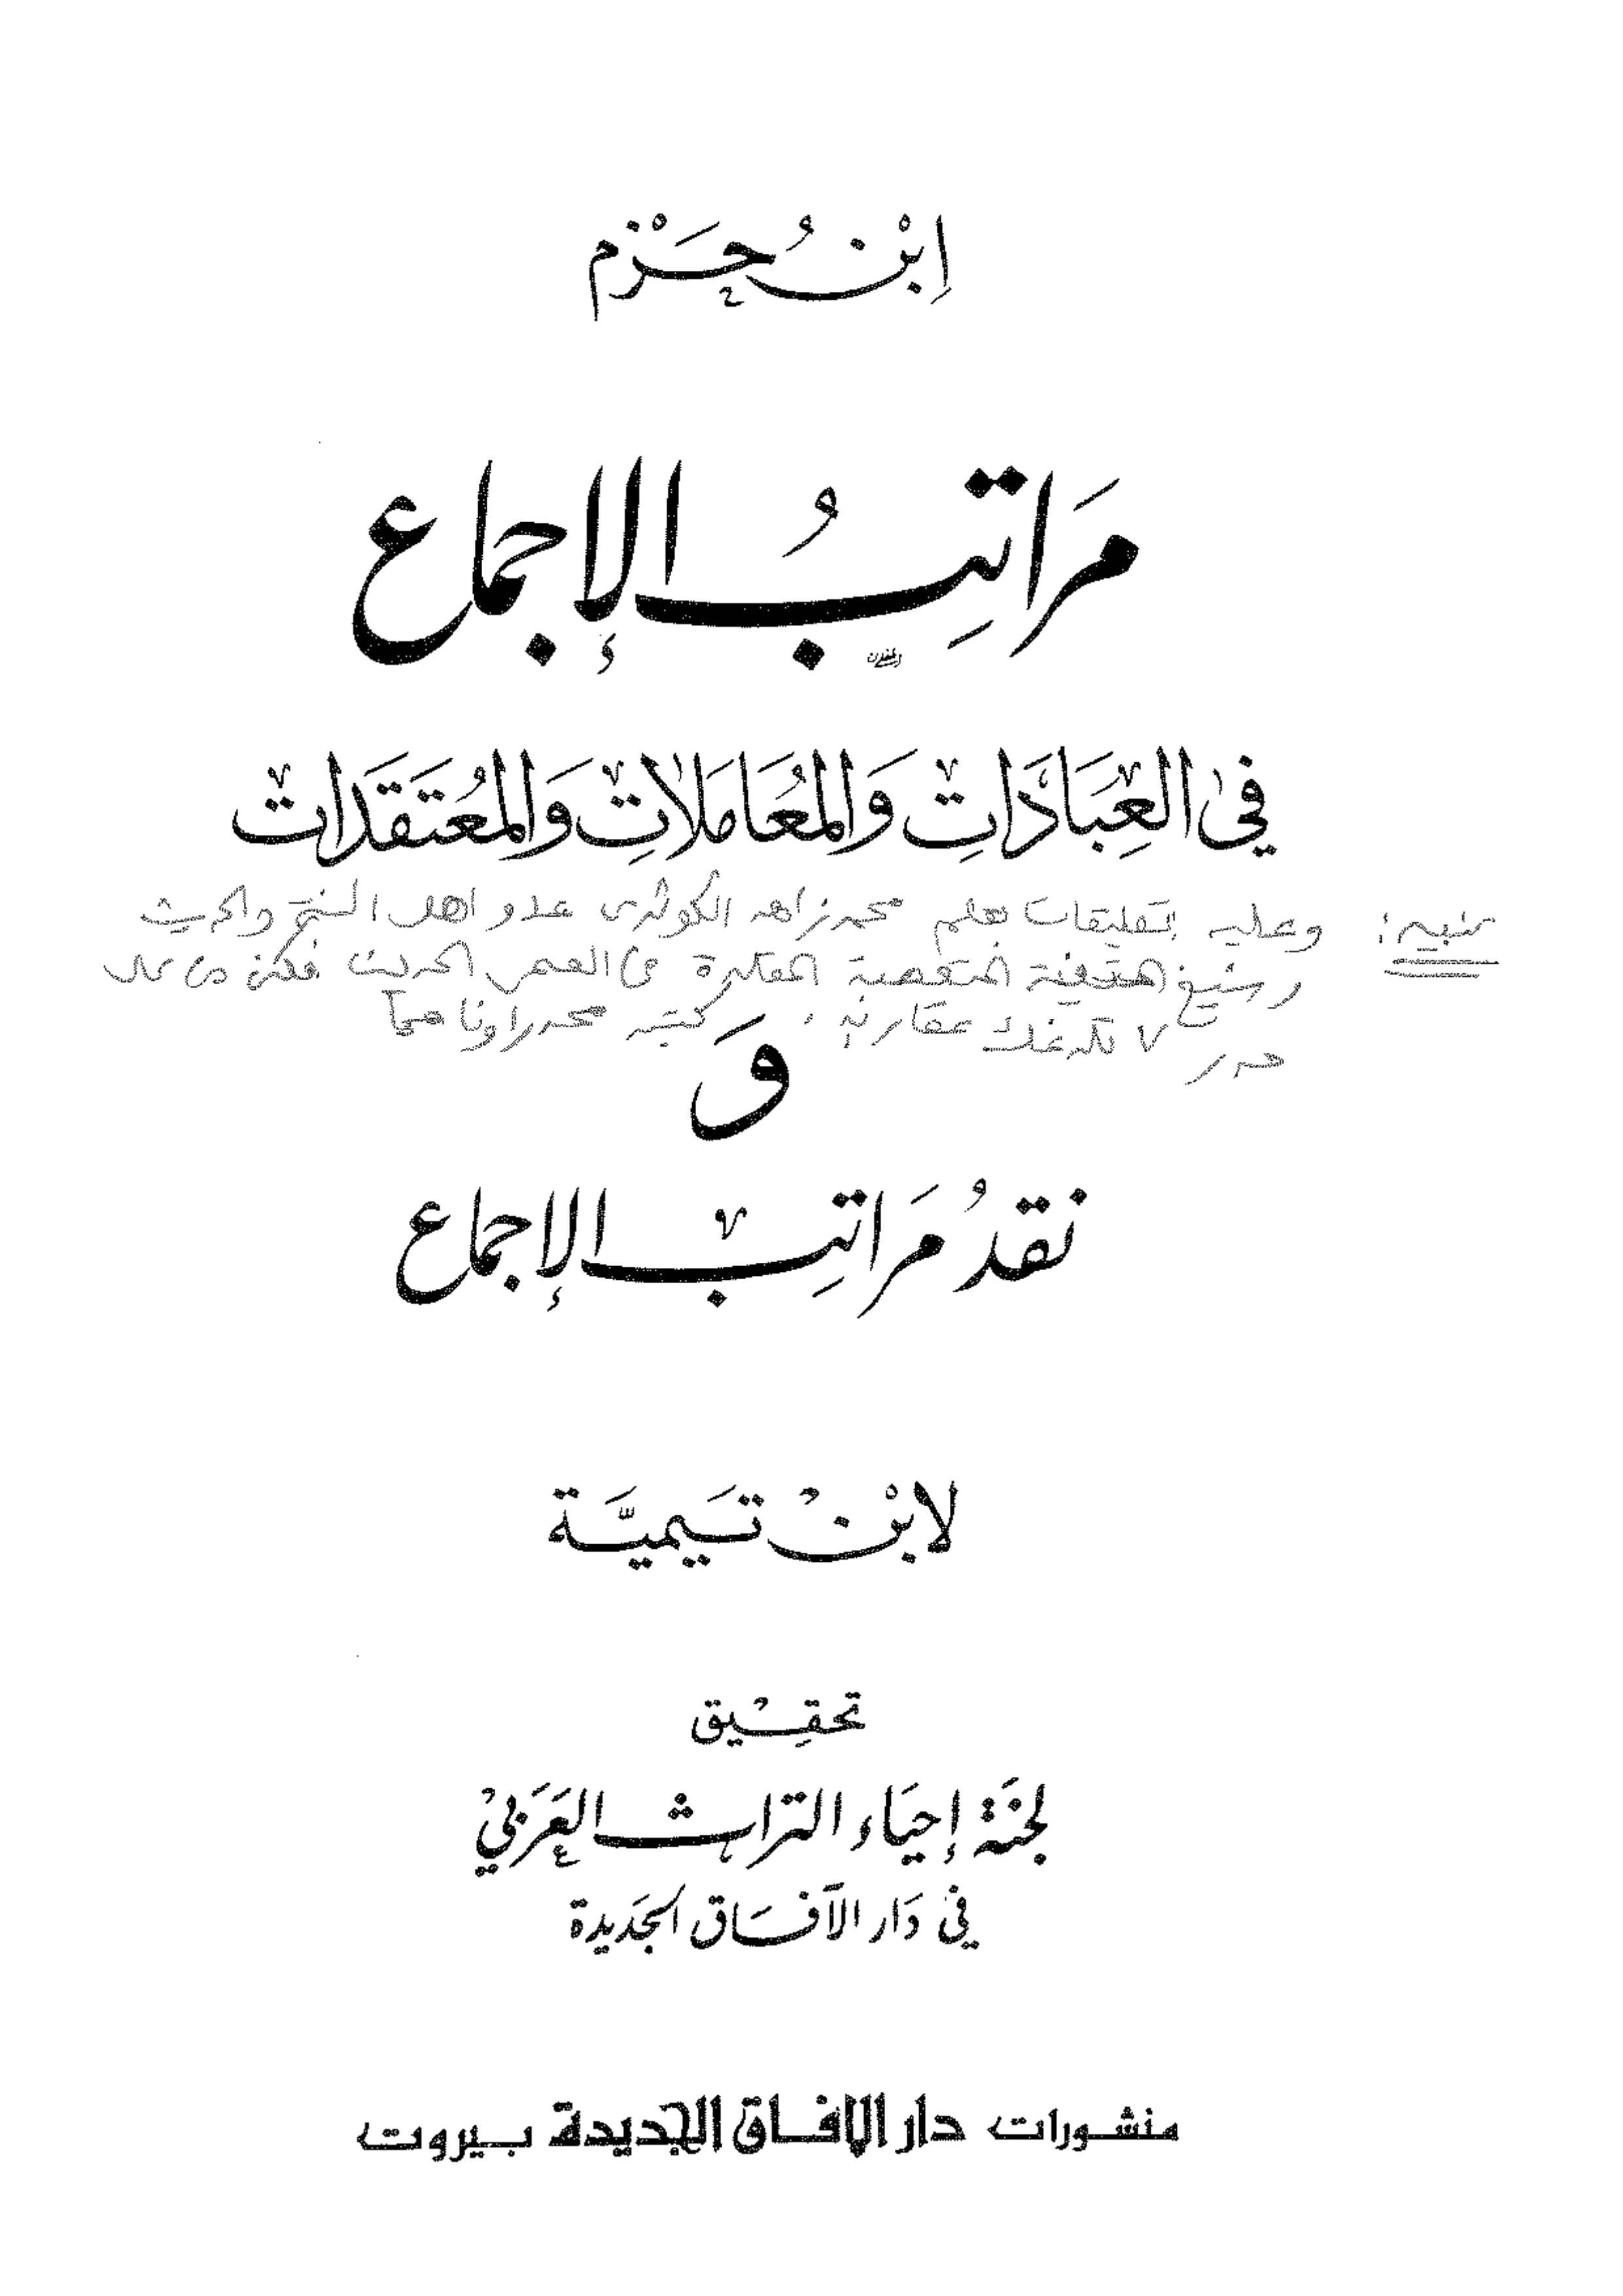 اِبْنُ حَزْم
مَرَاتِبُ الإِجماع
في العِبَادَاتِ وَالمُعَامَلاتِ وَالمُعتَقَدَات
تنبيه: وعليه تعليقات بقلم محمد زاهد الكوثري عدو اهل السنة والحديث
وشيخ المتعصبة المقلدة في العصر الحديث فكن من على
حذر لا تلدغك عقاربه، كتبه محمد
وَ
نقدُ مَرَاتِب الإِجماع
لابْن تَيميَّة
تحقِيق
لجنَة إِحيَاء التراث العَرَبي
في دَار الآفَاق الجَديدة
منشورات دار الافاق الجديدة بيروت